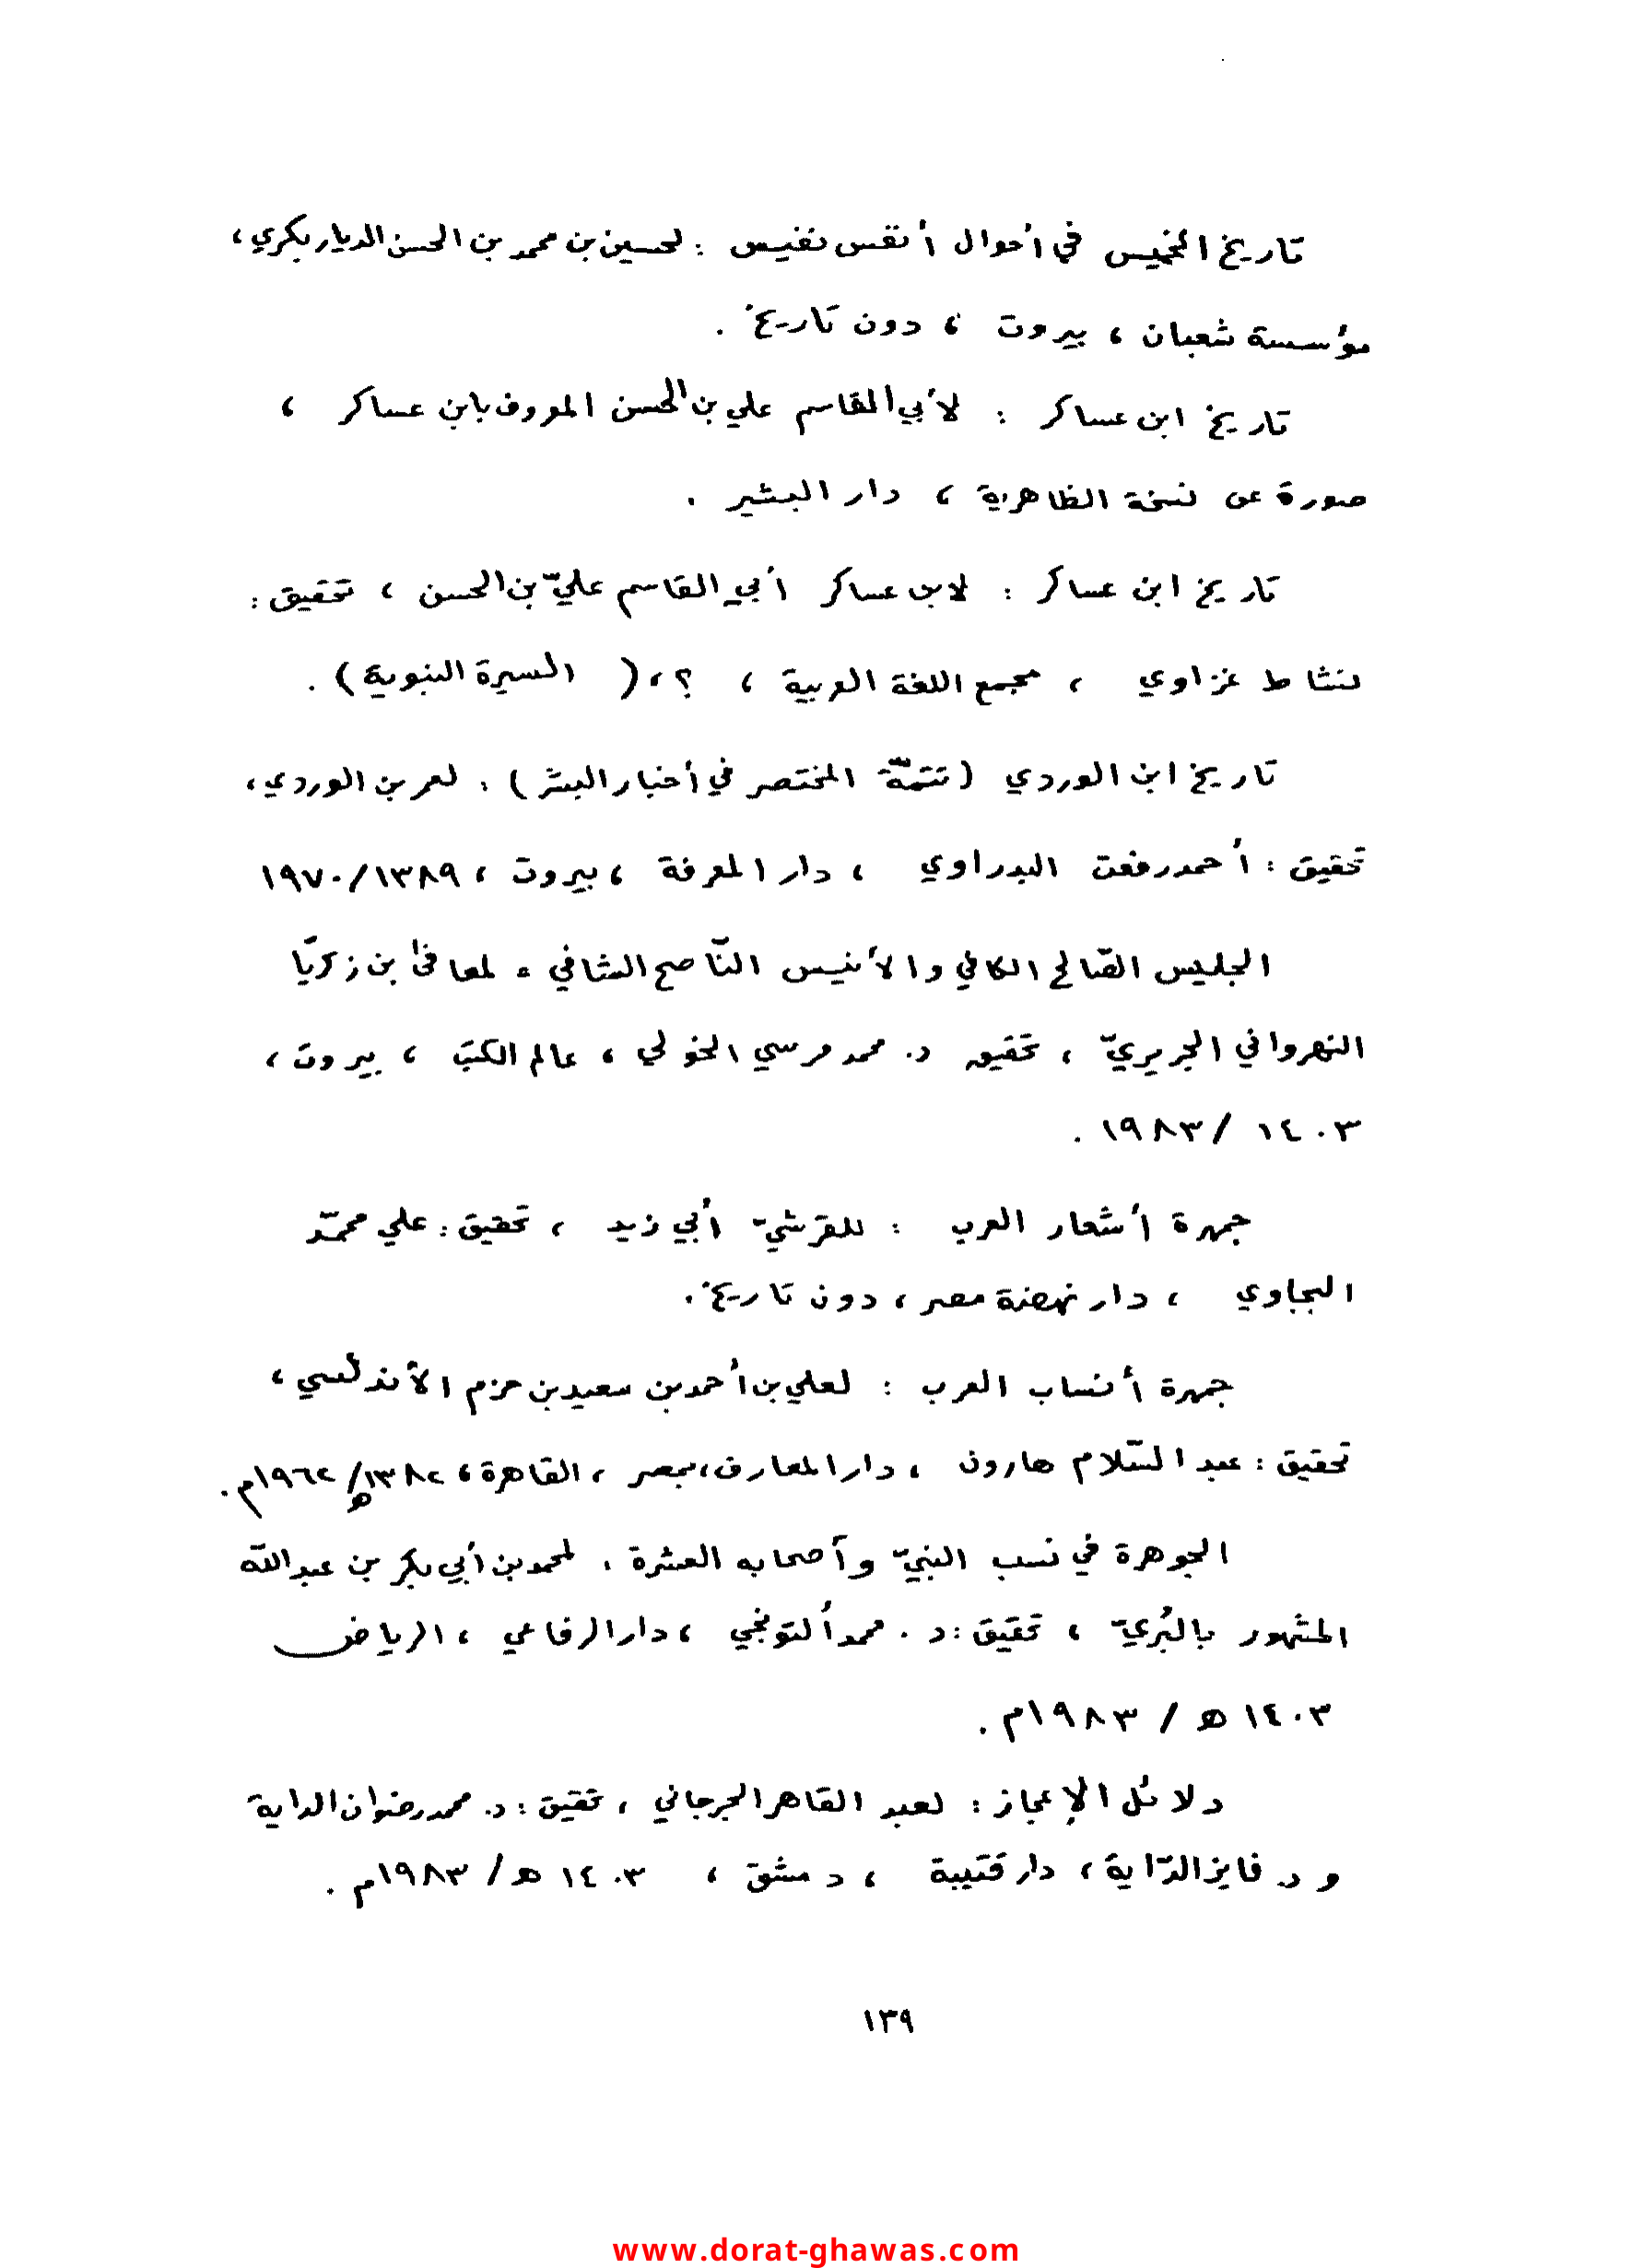 تاريخ الخميس في أحوال أنفس نفيس : لحسين بن محمد بن الحسن الديار بكري ،
مؤسسة شعبان ، بيروت ، دون تاريخ .
تاريخ ابن عساكر : لأبي القاسم علي بن الحسن المعروف بابن عساكر ،
صورة عن نسخة الظاهرية ، دار البشير .
تاريخ ابن عساكر : لابن عساكر أبي القاسم عليّ بن الحسن ، تحقيق :
لنشاط غزاوي ، مجمع اللغة العربية ، ؟ ، ( السيرة النبوية ) .
تاريخ ابن الوردي ( تتمّة المختصر في أخبار البشر ) : لعمر بن الوردي ،
تحقيق : أحمد رفعت البدراوي ، دار المعرفة ، بيروت ، ١٣٨٩/١٩٧٠
الجليس الصّالح الكافي والأنيس النّاصح الشافي : لمعافى بن زكريّا
النهرواني الجريريّ ، تحقيق د. محمد مرسي الخولي ، عالم الكتب ، بيروت ،
١٤٠٣ / ١٩٨٣ .
جمهرة أشعار العرب : للقرشيّ أبي زيد ، تحقيق : علي محمّد
البجاوي ، دار نهضة مصر ، دون تاريخ .
جمهرة أنساب العرب : لعلي بن أحمد بن سعيد بن حزم الأندلسي ،
تحقيق : عبد السّلام هارون ، دار المعارف بمصر ، القاهرة ، ١٣٨٢هـ/١٩٦٢م .
الجوهرة في نسب النبيّ وأصحابه العشرة : لمحمد بن أبي بكر بن عبد اللّه
المشهور بالبُريّ ، تحقيق : د . محمد ألتونجي ، دار الرفاعي ، الرياض
١٤٠٣ هـ / ١٩٨٣م .
دلائل الإعجاز : لعبد القاهر الجرجاني ، تحقيق : د. محمد رضوان الداية
و د. فايز الدّاية ، دار قتيبة ، دمشق ، ١٤٠٣ هـ / ١٩٨٣م .
١٣٩
www.dorat-ghawas.com